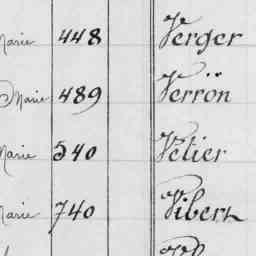 Marie 448 Verger
Marie 489 Verrön
Marie 540 Vetier
Marie 740 Vibert